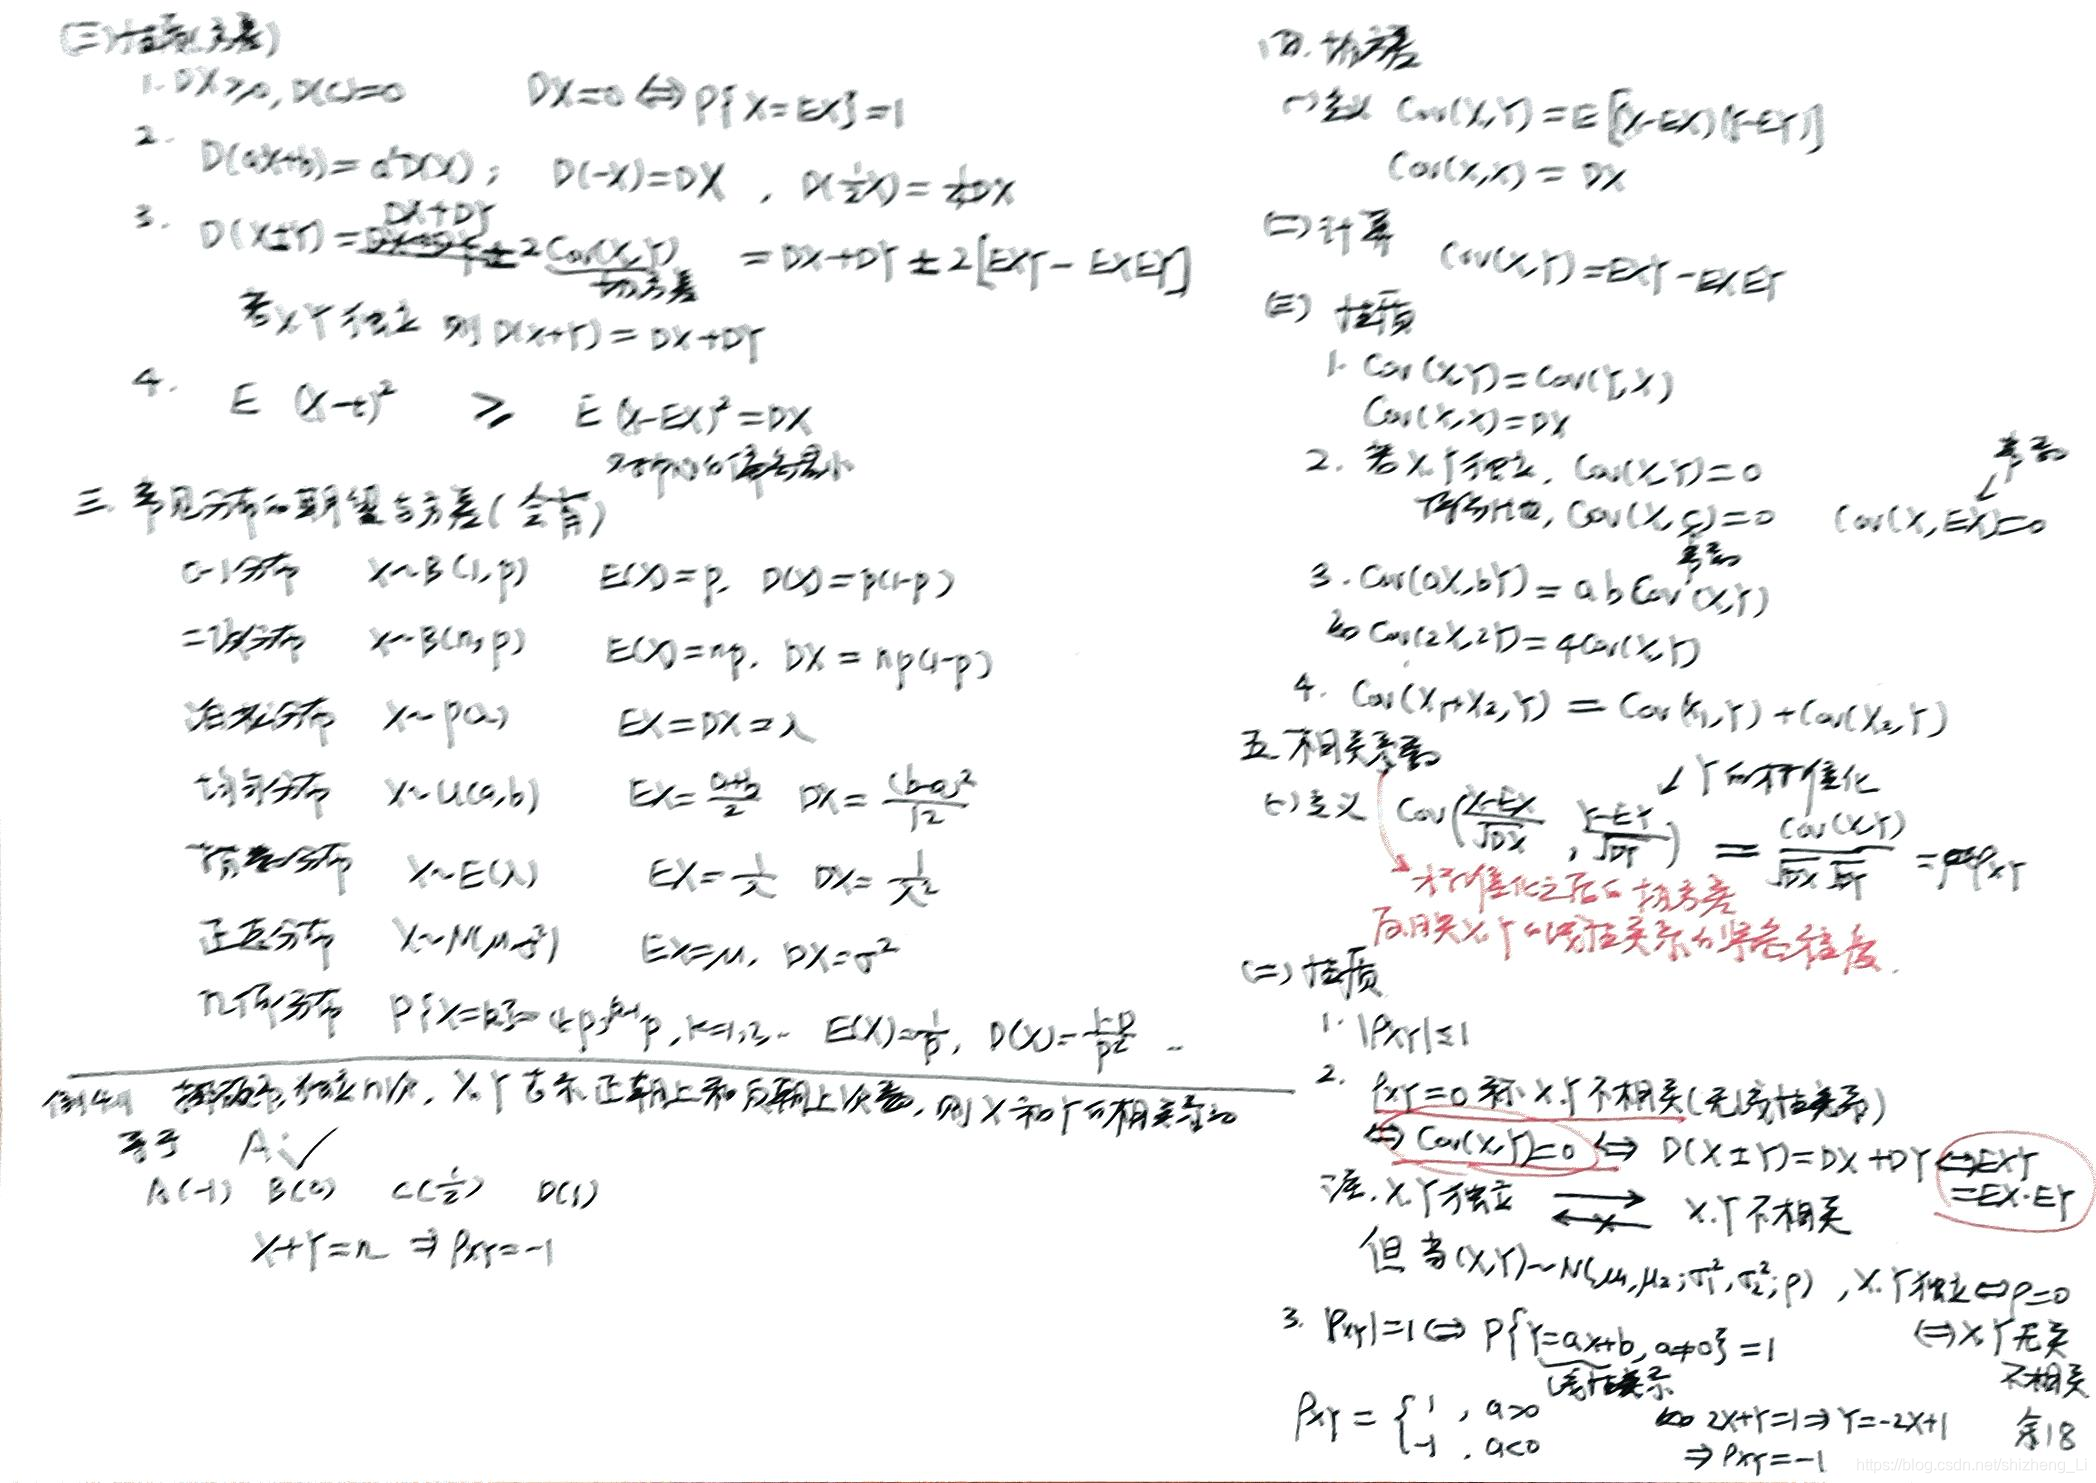 (三)性质(方差)
1. DX≥0, D(C)=0 DX=0⇔P{X=EX}=1
2.
D(aX+b)=a²D(X); D(-X)=DX, D(½X)=¼DX
3. DX+DY
D(X±Y)= ±2Cov(X,Y) =DX+DY±2[EXY-EXEY]
协方差
若X,Y独立 则D(X+Y)=DX+DY
4.
E (X-t)² ≥ E(X-EX)²=DX
对中心的偏离最小
三.常见分布的期望与方差(会背)
0-1分布 X~B(1,p) E(X)=p, D(X)=p(1-p)
二项分布 X~B(n,p) E(X)=np, DX=np(1-p)
泊松分布 X~P(λ) EX=DX=λ
均匀分布 X~U(a,b) EX=(a+b)/2 DX=(b-a)²/12
X~E(λ) EX=1/λ DX=1/λ²
正态分布 X~N(μ,σ²) EX=μ, DX=σ²
几何分布 P{X=k}=(1-p)^(k-1)p, k=1,2,.. E(X)=1/p, D(X)=(1-p)/p² ..
独立n次, X,Y表示正朝上和反朝上次数, 则X和Y的相关系数
等于 A:✓
A(-1) B(0) C(½) D(1)
X+Y=n ⇒ρXY=-1
四.协方差
(一)定义 Cov(X,Y)=E[(X-EX)(Y-EY)]
Cov(X,X)=DX
(二)计算
Cov(X,Y)=EXY-EXEY
(三) 性质
1. Cov(X,Y)=Cov(Y,X)
Cov(X,X)=DX
2. 若X,Y独立, Cov(X,Y)=0
常数
Cov(X,C)=0 Cov(X,EX)=0
常数
3. Cov(aX,bY)=abCov(X,Y)
如Cov(2X,2Y)=4Cov(X,Y)
4. Cov(X₁+X₂,Y)=Cov(X₁,Y)+Cov(X₂,Y)
五.相关系数
↙Y的标准化
(一)定义 Cov((X-EX)/√DX, (Y-EY)/√DY)=Cov(X,Y)/(√DX√DY)=ρXY
标准化之后的协方差
反映X,Y的线性关系的紧密程度.
(二)性质
1. |ρXY|≤1
2. ρXY=0 称X,Y不相关(无线性关系)
⇔Cov(X,Y)=0⇔D(X±Y)=DX+DY⇔EXY
=EX·EY
注. X,Y独立 ⇄ X,Y不相关
但当(X,Y)~N(μ₁,μ₂;σ₁²,σ₂²;ρ), X,Y独立⇔ρ=0
⇔X,Y无关
不相关
3. |ρXY|=1⇔P{Y=aX+b, a≠0}=1
线性关系
ρXY={1, a>0
-1, a<0
如2X+Y=1⇒Y=-2X+1
⇒ρXY=-1
余18
https://blog.csdn.net/shizheng_Li